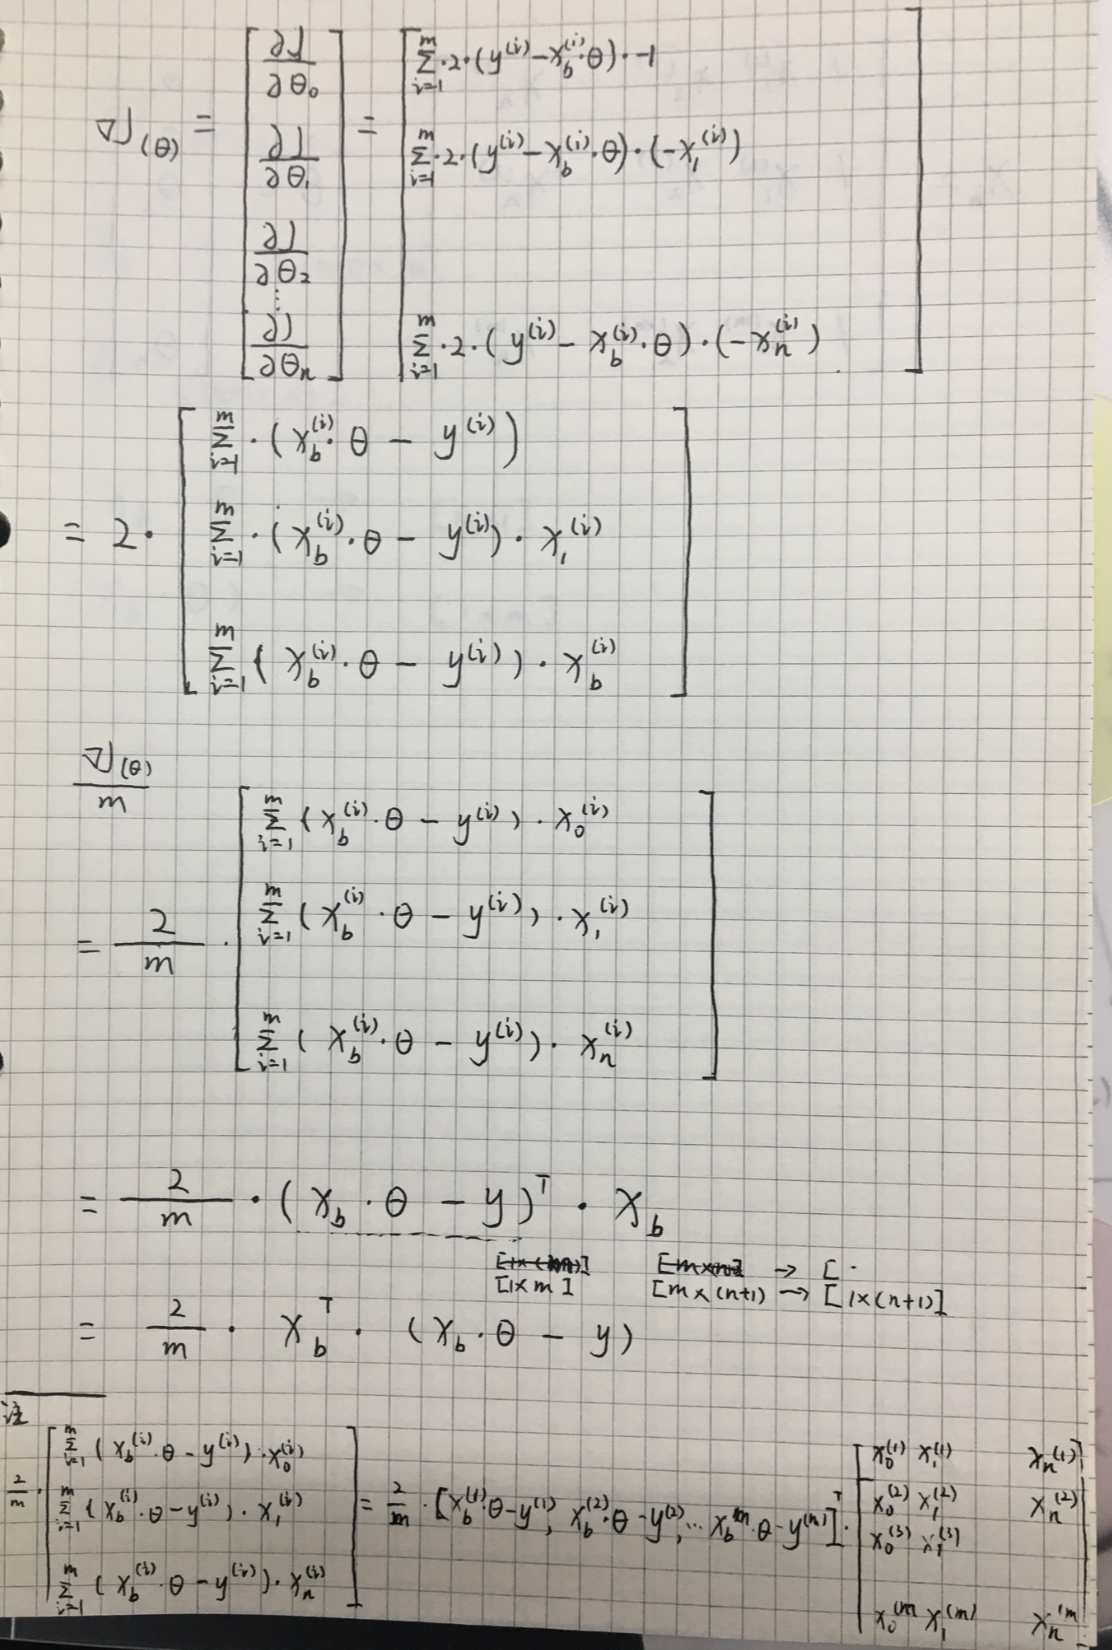 ∇J(θ) = [ ∂J/∂θ₀ ; ∂J/∂θ₁ ; ∂J/∂θ₂ ; ⋮ ; ∂J/∂θₙ ] = [ Σ_{i=1}^{m}·2·(y^(i) − x_b^(i)·θ)·−1 ; Σ_{i=1}^{m}·2·(y^(i) − x_b^(i)·θ)·(−x₁^(i)) ; Σ_{i=1}^{m}·2·(y^(i) − x_b^(i)·θ)·(−xₙ^(i)) ]
= 2· [ Σ_{i=1}^{m}·(x_b^(i)·θ − y^(i)) ; Σ_{i=1}^{m}·(x_b^(i)·θ − y^(i))·x₁^(i) ; Σ_{i=1}^{m}(x_b^(i)·θ − y^(i))·x_b^(i) ]
∇J(θ)/m
= 2/m · [ Σ_{i=1}^{m}(x_b^(i)·θ − y^(i))·x₀^(i) ; Σ_{i=1}^{m}(x_b^(i)·θ − y^(i))·x₁^(i) ; Σ_{i=1}^{m}(x_b^(i)·θ − y^(i))·xₙ^(i) ]
= 2/m · (x_b·θ − y)^T · X_b
→ [·
[1×m] [m×(n+1) → [1×(n+1)]
= 2/m · X_b^T · (x_b·θ − y)
注
2/m · [ Σ_{i=1}^{m}(x_b^(i)·θ − y^(i))·x₀^(i) ; Σ_{i=1}^{m}(x_b^(i)·θ − y^(i))·x₁^(i) ; Σ_{i=1}^{m}(x_b^(i)·θ − y^(i))·xₙ^(i) ] = 2/m · [x_b^(1)·θ − y^(1), x_b^(2)·θ − y^(2), ... x_b^m·θ − y^(m)]^T · [ x₀^(1) x₁^(1) xₙ^(1) ; x₀^(2) x₁^(2) xₙ^(2) ; x₀^(3) x₁^(3) ; x₀^(m x₁^(m) xₙ^(m ]